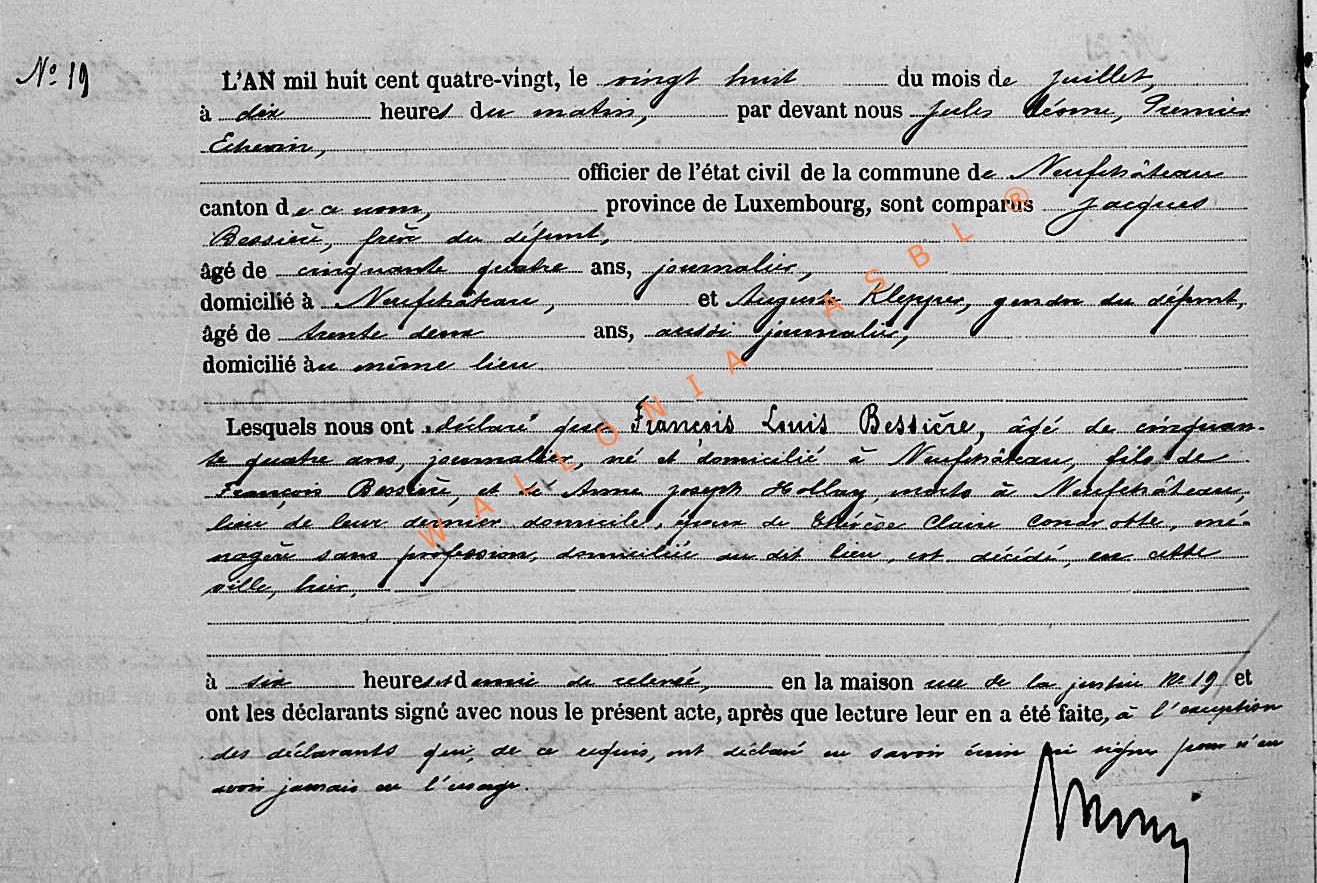 N° 19
L'AN mil huit cent quatre-vingt, le vingt huit du mois de juillet,
à dix heures du matin, par devant nous Jules Premier
Echevin,
officier de l'état civil de la commune de Neufchâteau
canton de ce nom, province de Luxembourg, sont comparus Jacques
Bessière, frère du défunt,
âgé de cinquante quatre ans, journalier,
domicilié à Neufchâteau, et Auguste Klepper, gendre du défunt,
âgé de trente deux ans, aussi journalier,
domicilié au même lieu
Lesquels nous ont déclaré que François Louis Bessière, âgé de cinquan-
te quatre ans, journalier, né et domicilié à Neufchâteau, fils de
François Bessière, et de Anne Joseph Hollay, morts à Neufchâteau,
lieu de leur dernier domicile, époux de Thérèse Claire Condrotte, mé-
nagère sans profession, domiciliée au dit lieu, est décédé, en cette
ville, hier,
à six heures et demie de relevée, en la maison rue de la justice N° 19 et
ont les déclarants signé avec nous le présent acte, après que lecture leur en a été faite, à l'exception
des déclarants qui, de ce requis, ont déclaré ne savoir écrire ni signer pour n'en
avoir jamais eu l'usage.
WALLONIA ASBL ®